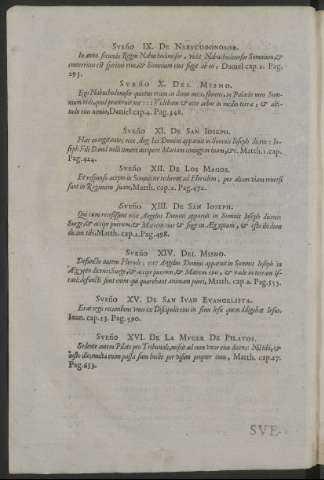 SVEÑO IX. DE NABVCODONOSOR.
In anno secundo Regni Nabuchodonosor, vidit Nabuchodonosor Somnium, &
conterritus est spiritus eius, & Somnium eius fugit ab eo, Daniel cap. 2. Pag.
295.
SVEÑO X. DEL MISMO.
Ego Nabuchodonosor quietus eram in domo mea, & florens in Palatio meo Som-
nium vidi, quod perterruit me ::: Videbam & ecce arbor in medio terræ, & alti-
tudo eius nimia, Daniel cap. 4. Pag. 348.
SVEÑO XI. DE SAN IOSEPH.
Hæc eo cogitante, ecce Angelus Domini apparuit in Somnis Ioseph dicens: Io-
seph Fili David noli timere accipere Mariam coniugem tuam, &c. Matth. 1. cap.
Pag. 424.
SVEÑO XII. DE LOS MAGOS.
Et responso accepto in Somnis ne redirent ad Herodem, per aliam viam reversi
sunt in Regionem suam, Matth. cap. 2. Pag. 472.
SVEÑO XIII. DE SAN IOSEPH.
Qui cum recessissent ecce Angelus Domini apparuit in Somnis Ioseph dicens:
Surge, & accipe puerum, & Matrem eius & fuge in Ægyptum, & esto ibi donec
dicam tibi, Matth. cap. 2. Pag. 498.
SVEÑO XIV. DEL MISMO.
Defuncto autem Herode, ecce Angelus Domini apparuit in Somnis Ioseph in
Ægypto dicens: Surge, & accipe puerum, & Matrem eius, & vade in terram Is-
rael, defuncti sunt enim qui quærebant animam pueri, Matth. cap. 2. Pag. 553.
SVEÑO XV. DE SAN IVAN EVANGELISTA.
Erat ergo recumbens vnus ex Discipulis eius in sinu Iesu quem diligebat Iesus.
Ioan. cap. 13. Pag. 590.
SVEÑO XVI. DE LA MVGER DE PILATOS.
Sedente autem Pilato pro Tribunali, misit ad eum vxor eius dicens: Nihil tibi, &
iusto illi; multa enim passa sum hodie per visum propter eum, Matth. cap. 27.
Pag. 633.
SVE-